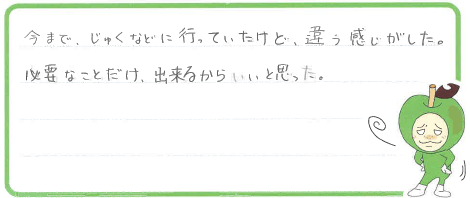 今まで、じゅくなどに行っていたけど、違う感じがした。
必要なことだけ、出来るからいいと思った。